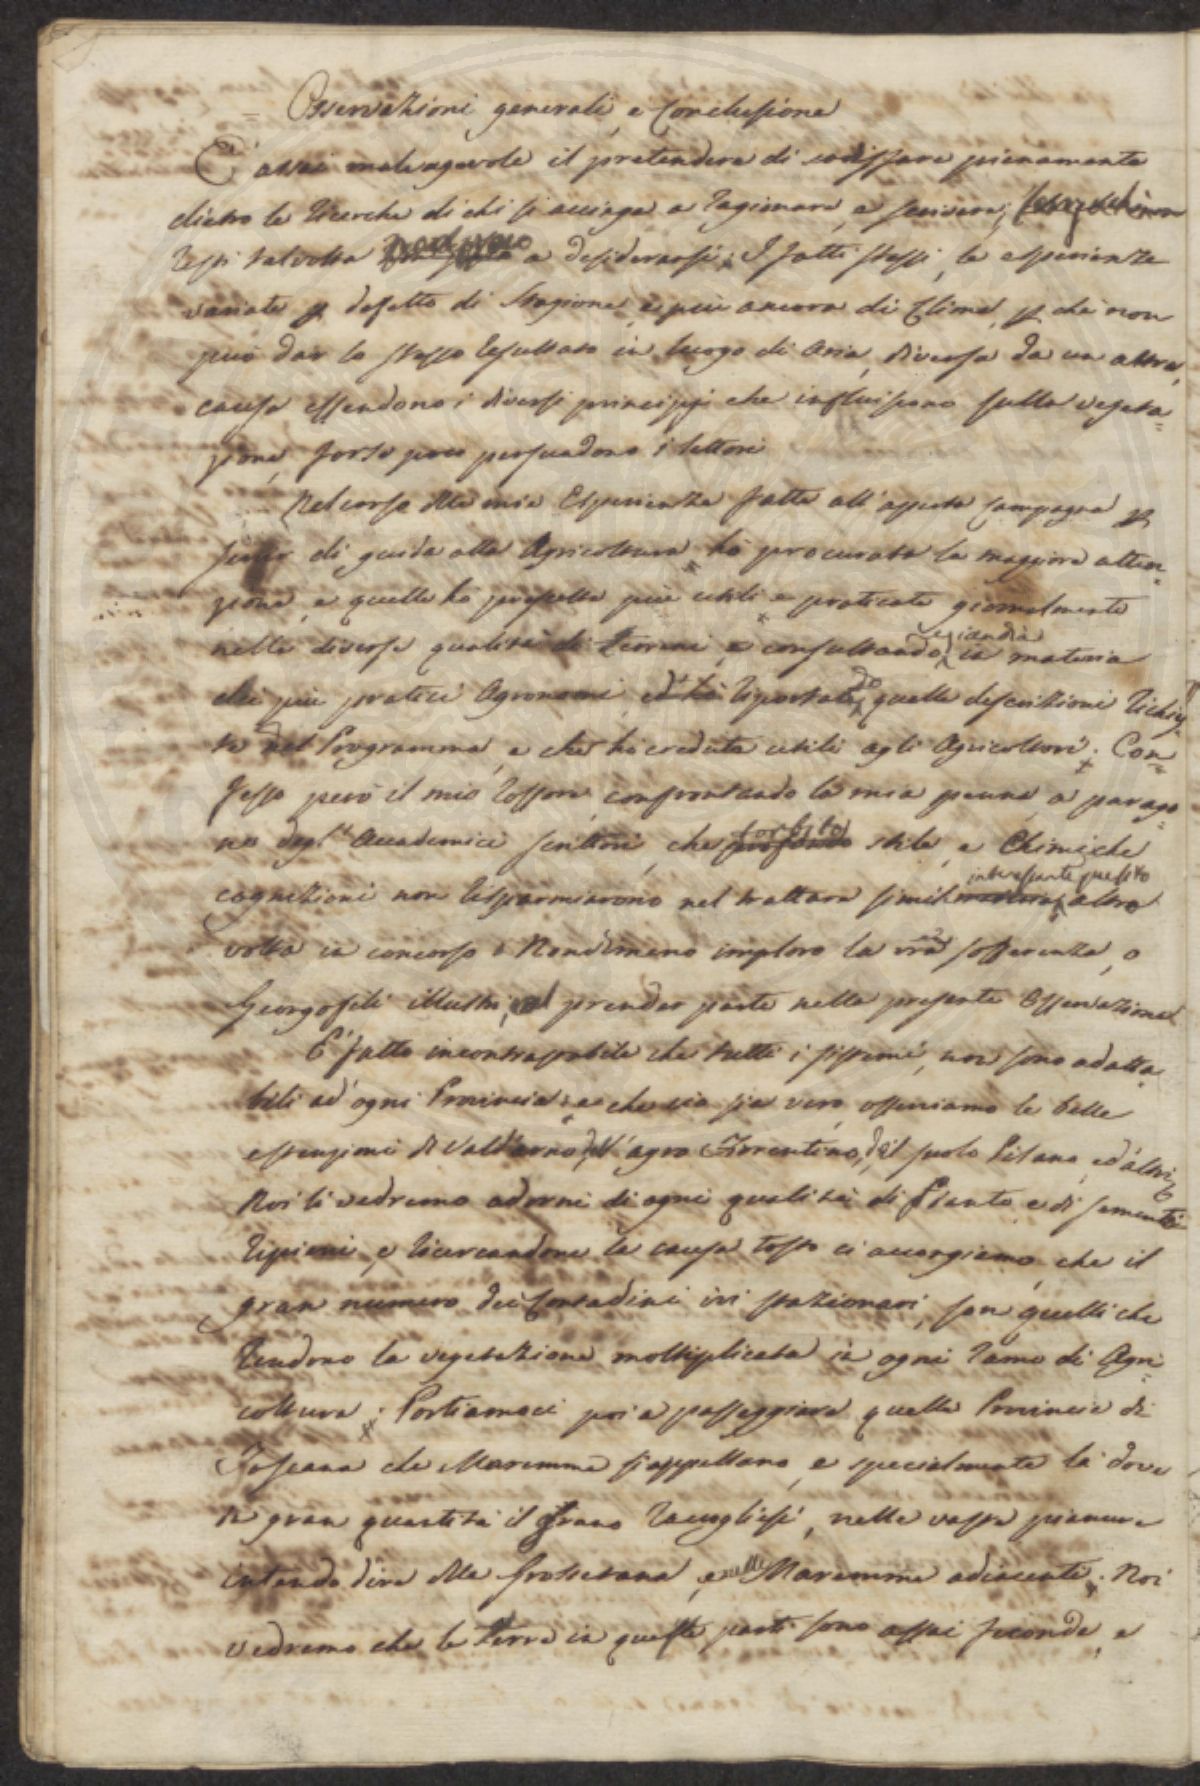 = Osservazioni generali, e Conclusione
E' assai malagevole il pretendere di sodisfare pienamente
dietro le ricerche di chi si accinge a ragionare, e scrivere,
resti talvolta a desiderarsi; I fatti stessi, le esperienze
variate p difetto di Stagione, e più ancora di Clima, p chè non
può dar lo stesso resultato in luogo di Aria, diversa da un altra,
causa essendono i diversi principj che influiscono sulla vegeta=
zione, forse poco persuadono i lettori
Nel corso della mia Esperienza fatta all'aperta Campagna p
servir di guida alla Agricoltura, ho procurata la maggiore atten=
zione, e quelle ho prescelte più utili e praticate giornalmente
nelle diverse qualità di Terreni, e consultando in materia
dei più pratici Agronomi, ed ho riportate quelle descrizioni richies=
te nel Programma, e che ho credute utili agli Agricoltori. Con=
fesso però il mio rossore, confrontando la mia penna, a parago=
ne degl'Accademici scrittori, che forbito stile, e Chimiche
cognizioni non risparmiarono nel trattare simil interessante quesito altre
volte in concorso. Nondimeno imploro la vra sofferenza, o
Georgofili illustri, nel prender parte nelle presente Osservazione
E' fatto incontrastabile che tutti i sistemi, non sono adatta=
bili ad ogni Provincia: e che ciò sia vero, osserviamo le belle
estensioni di Valdarno, dell'agro Fiorentino, del suolo Pisano, ed altri
Noi li vedremo adorni di ogni qualità di Piante, e di sementi
ripieni, e ricercandone la causa tosto ci accorgiamo, che il
gran numero dei Contadini ivi stazionari, son quelli che
rendono la vegetazione moltiplicata in ogni ramo di Agri=
coltura. Portiamoci poi a passeggiare quelle Provincie di
Toscana che Maremme si appellano, e specialmente là dove
in gran quantità il grano raccogliesi, nelle vaste pianure
intendo dire della Grossetana, e nelle Maremme adiacenti. Noi
vedremo che le terre in queste parti sono assai feconde, e